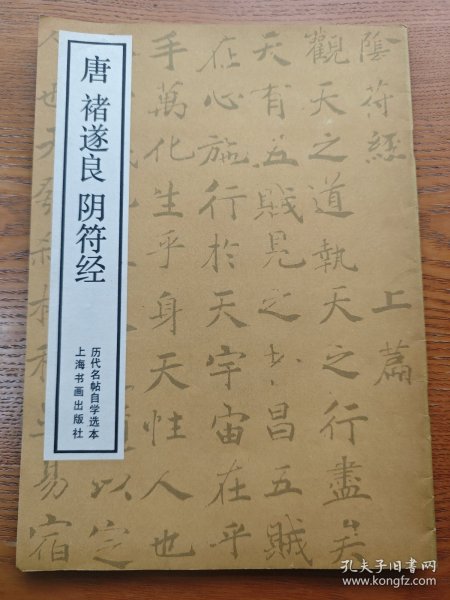 唐 褚遂良 阴符经
历代名帖自学选本
上海书画出版社
陰符經 上篇
觀天之道執天之行盡矣
天有五賊見之者昌五賊
在心施行於天宇宙在乎
手萬化生乎身天性人也
以定
易宿
孔夫子旧书网
www.kongfz.com